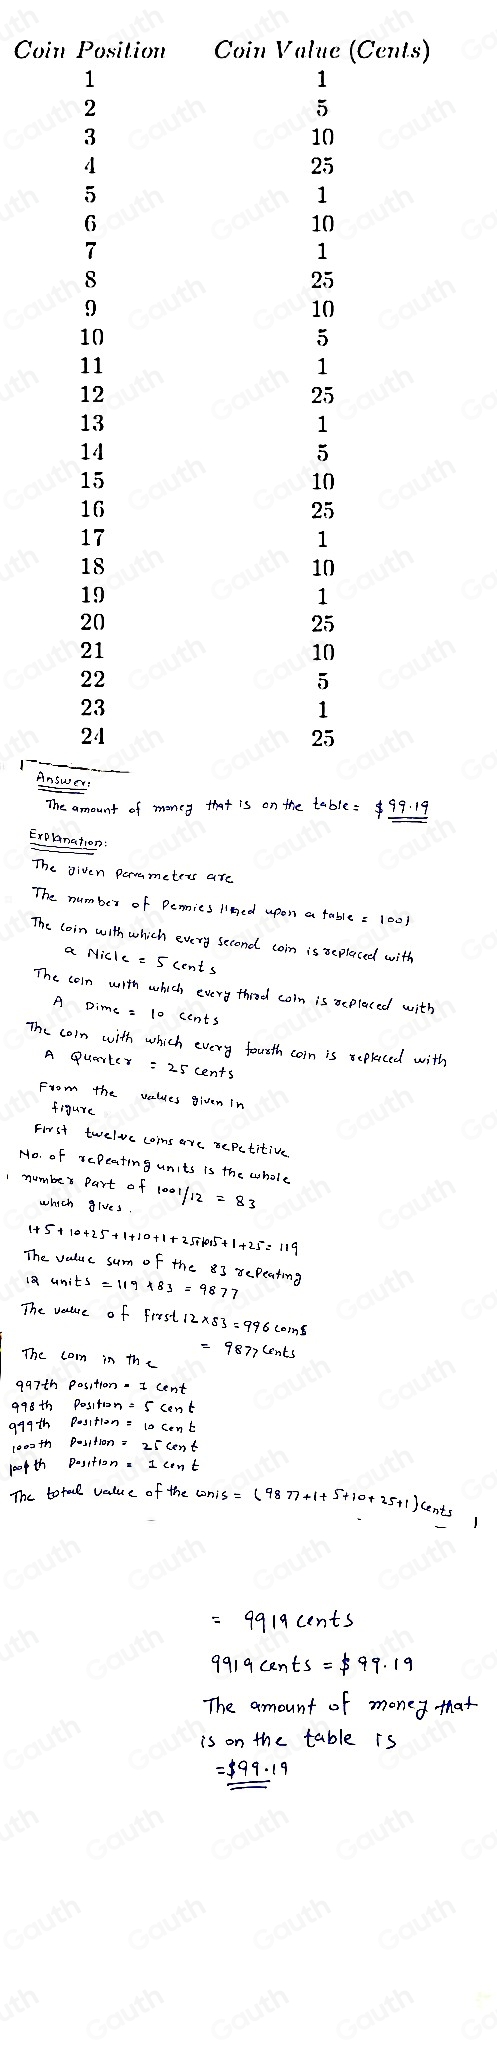 Coin Position Coin Value (Cents)
1 1
2 5
3 10
4 25
5 1
6 10
7 1
8 25
9 10
10 5
11 1
12 25
13 1
14 5
15 10
16 25
17 1
18 10
19 1
20 25
21 10
22 5
23 1
24 25
Answer:
The amount of money that is on the table = $99.19
Explanation:
The given parameters are
The number of Pennies lined upon a table = 1001
The coin with which every second coin is replaced with
a Nicle = 5 cents
The coin with which every third coin is replaced with
A Dime = 10 cents
The coin with which every fourth coin is replaced with
A Quarter = 25 cents
From the values given in
figure
First twelve coins are repetitive
No. of repeating units is the whole
number part of 1001/12 = 83
which gives.
1+5+10+25+1+10+1+25+10+5+1+25= 119
The value sum of the 83 repeating
12 units = 119 x 83 = 9877
The value of first 12x83 = 996 coins
= 9877 cents
The coin in the
997th Position = 1 cent
998th Position = 5 cent
999th Position = 10 cent
1000th Position = 25 cent
1001th Position = 1 cent
The total value of the conis = (9877+1+5+10+25+1) cents
= 9919 cents
9919 cents = $99.19
The amount of money that
is on the table is
=$99.19
Gauth